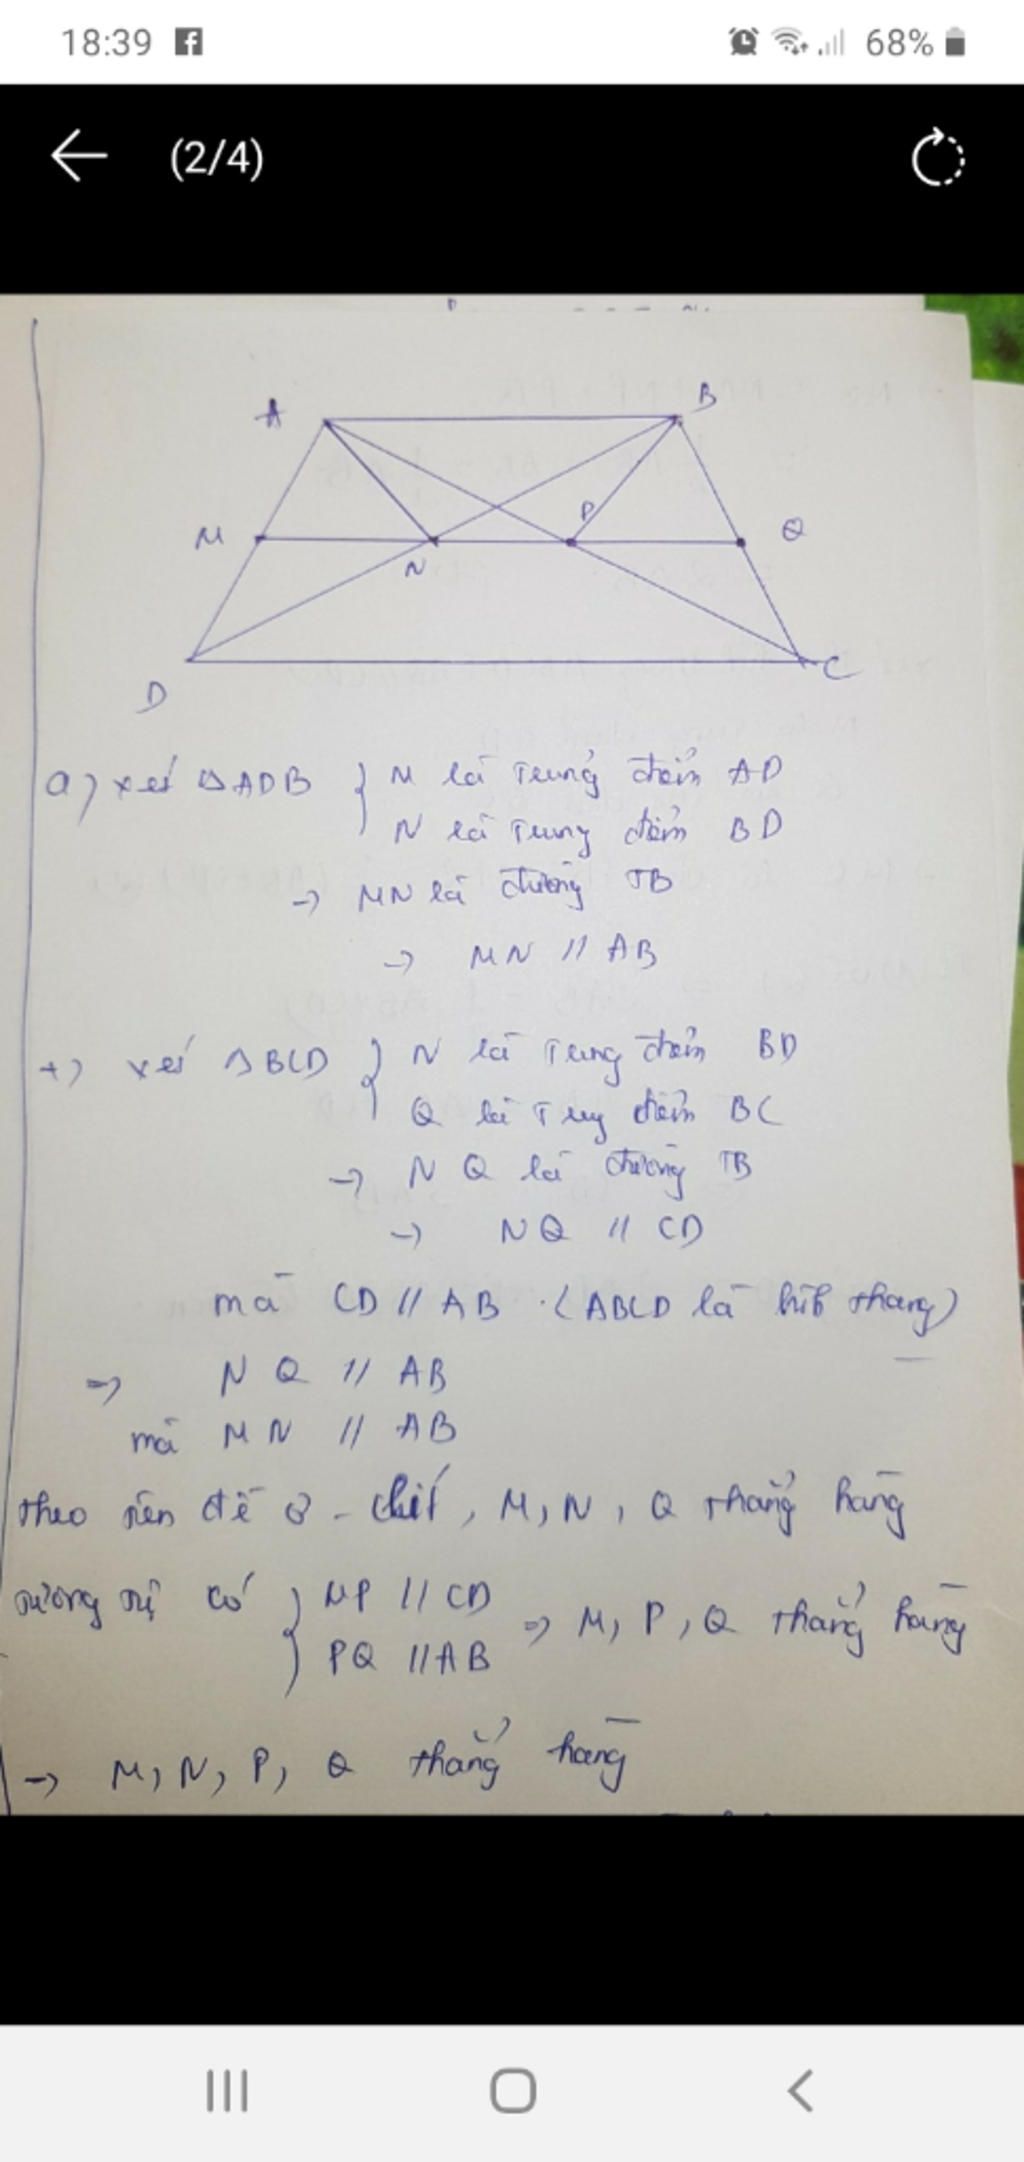 18:39
68%
(2/4)
A
B
M
N
P
Q
D
C
a) xét ΔADB { M là trung điểm AD
N là trung điểm BD
→ MN là đường TB
→ MN // AB
+) xét ΔBCD { N là trung điểm BD
Q là trung điểm BC
→ NQ là đường TB
→ NQ // CD
mà CD // AB . (ABCD là hình thang)
→ NQ // AB
mà MN // AB
theo tiên đề Ơ-clit, M, N, Q thẳng hàng
tương tự có { MP // CD
PQ // AB
⇒ M, P, Q thẳng hàng
→ M, N, P, Q thẳng hàng